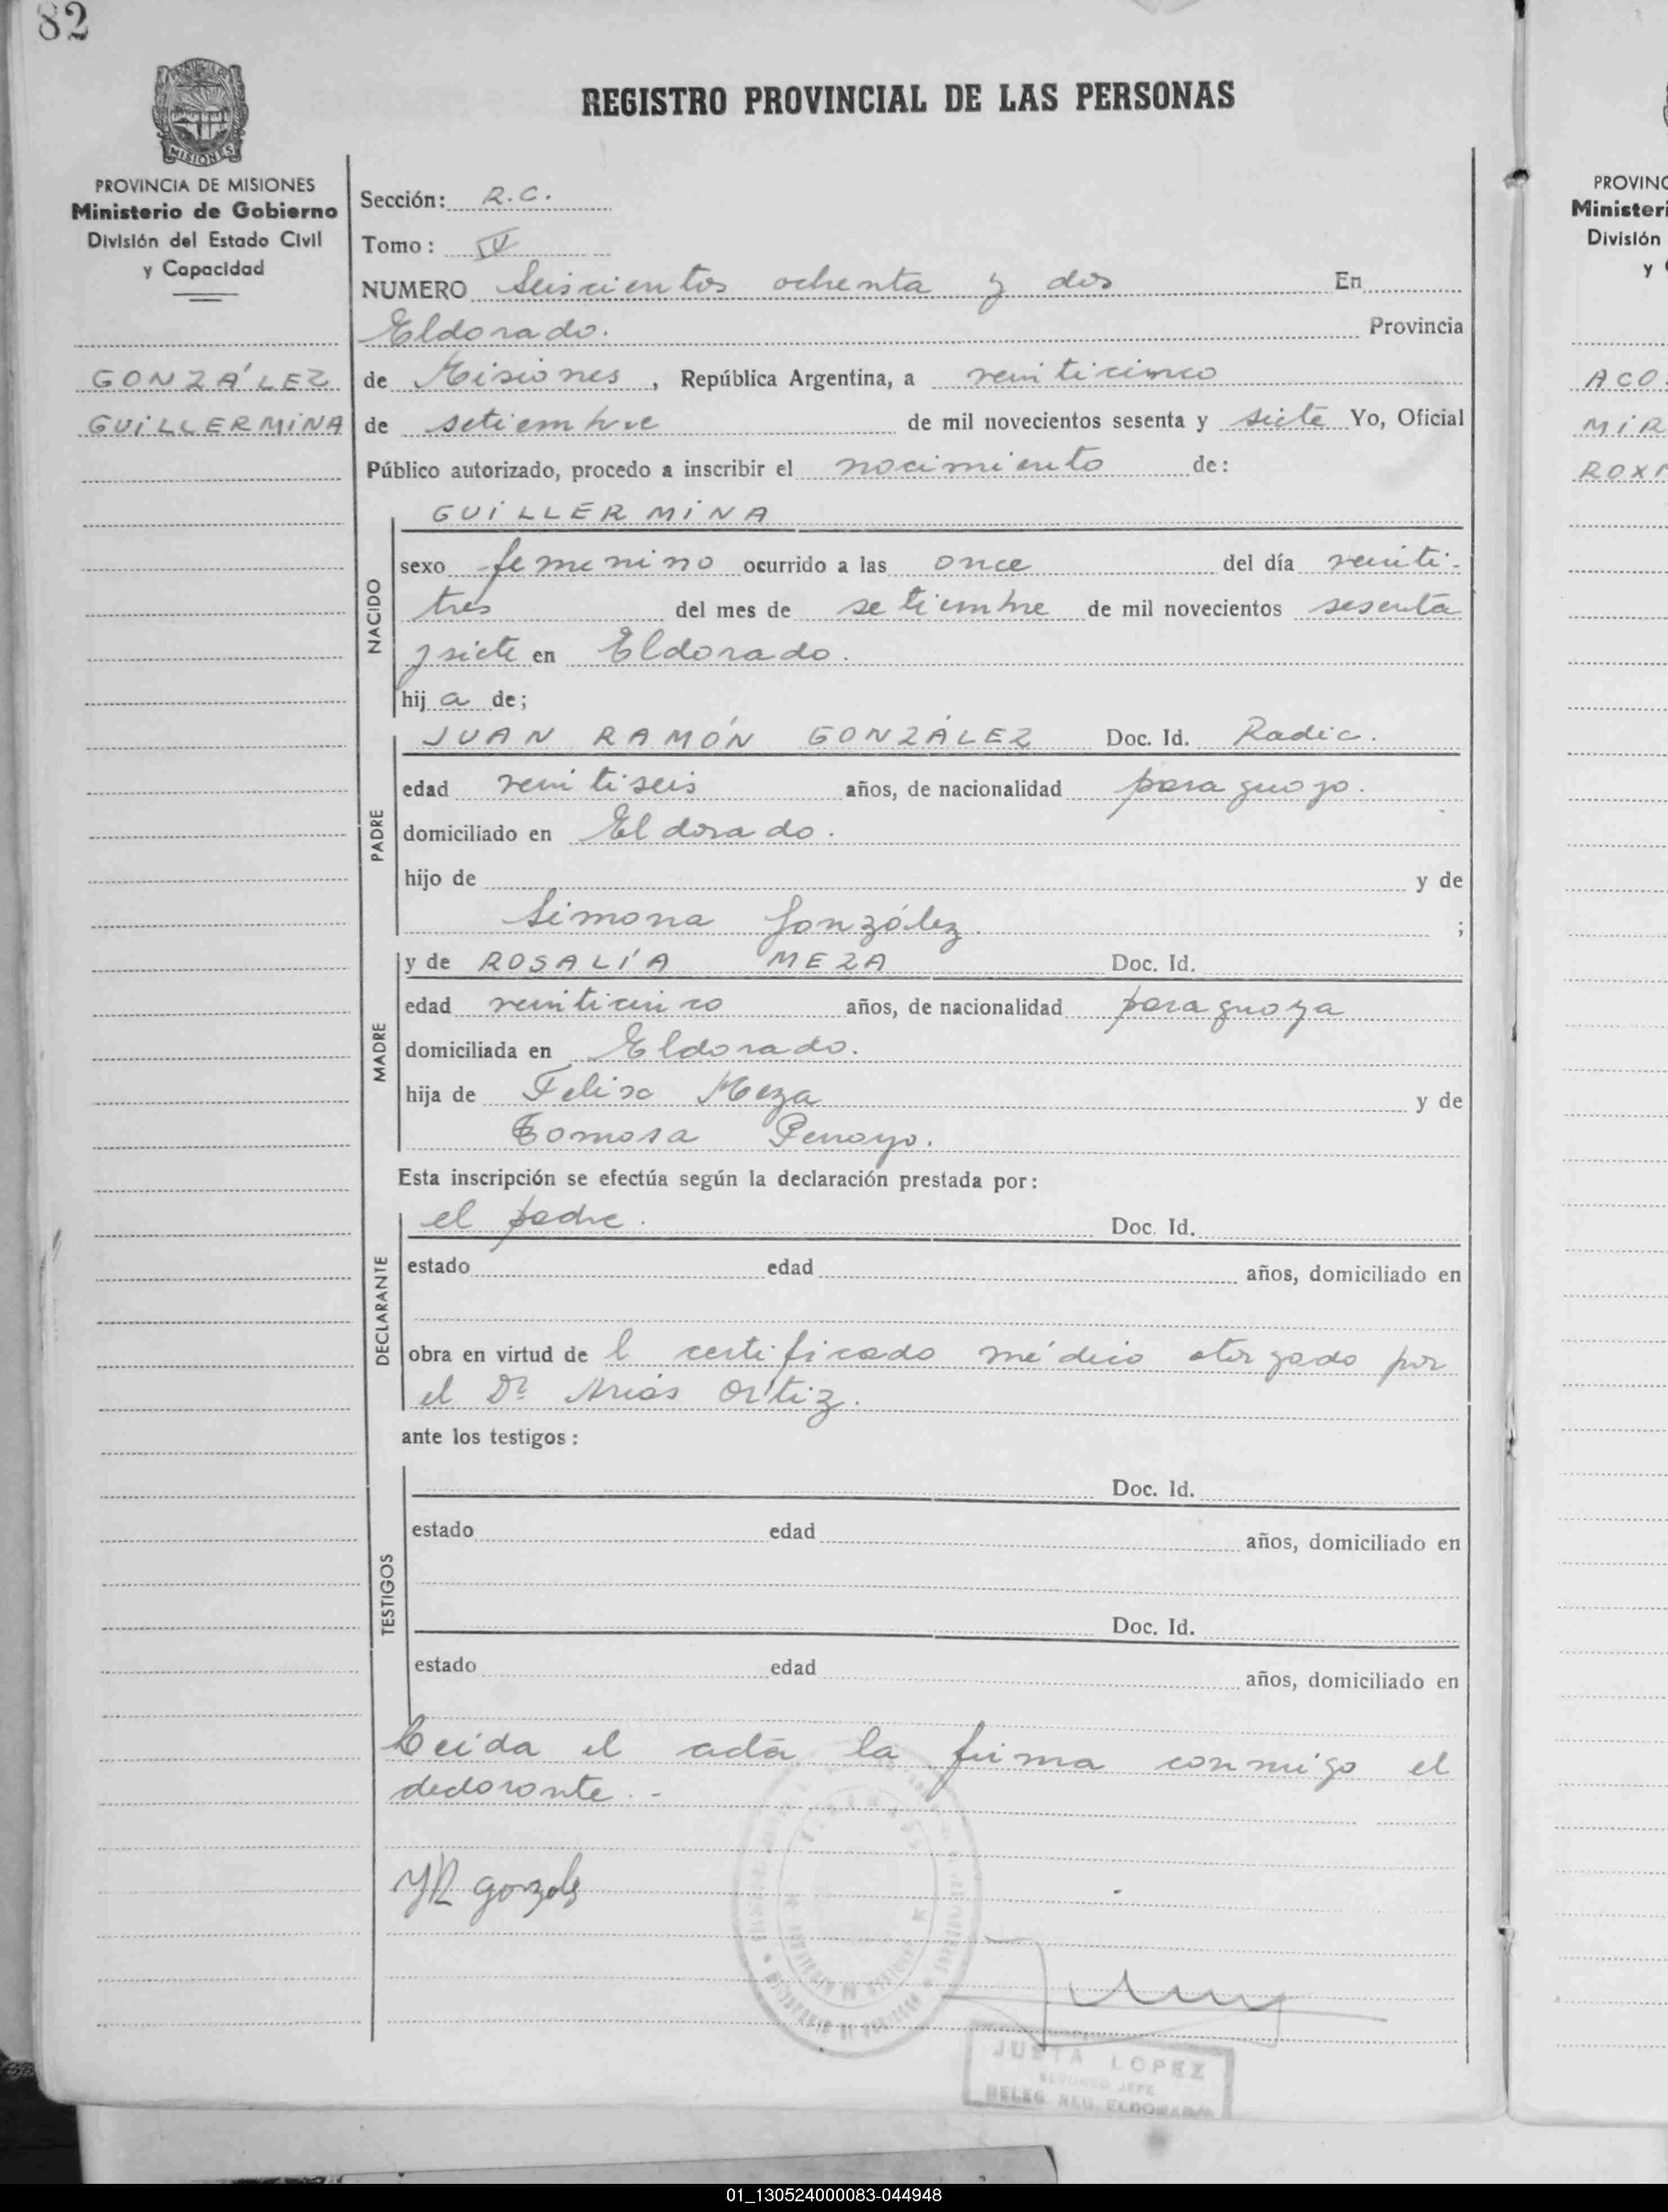 82
REGISTRO PROVINCIAL DE LAS PERSONAS
MISIONES
PROVINCIA DE MISIONES
Ministerio de Gobierno
División del Estado Civil
y Capacidad
GONZÁLEZ
GUILLERMINA
Sección: R.C.
Tomo: IV
NUMERO Seiscientos ochenta y dos En
Eldorado. Provincia
de Misiones, República Argentina, a veinticinco
de setiembre de mil novecientos sesenta y siete Yo, Oficial
Público autorizado, procedo a inscribir el nacimiento de:
NACIDO
GUILLERMINA
sexo femenino ocurrido a las once del día veinti-
tres del mes de setiembre de mil novecientos sesenta
y siete en Eldorado.
hija de;
PADRE
JUAN RAMÓN GONZÁLEZ Doc. Id. Radic.
edad veintiseis años, de nacionalidad paraguayo.
domiciliado en Eldorado.
hijo de y de
Simona González. ;
MADRE
y de ROSALÍA MEZA Doc. Id.
edad veinticinco años, de nacionalidad paraguaya
domiciliada en Eldorado.
hija de Meza y de
Tomasa
Esta inscripción se efectúa según la declaración prestada por:
DECLARANTE
el padre. Doc. Id.
estado edad años, domiciliado en
obra en virtud del certificado médico otorgado por
el Dr Arias Ortiz.
ante los testigos:
TESTIGOS
Doc. Id.
estado edad años, domiciliado en
Doc. Id.
estado edad años, domiciliado en
Leída el acta la firma conmigo el
declarante.-
JR gonzale
JUSTA LOPEZ
SEGUNDO JEFE
DELEG. REG. ELDORADO
PROVINC
Ministeri
División
y
ACO
MIR
ROXI
01_130524000083-044948